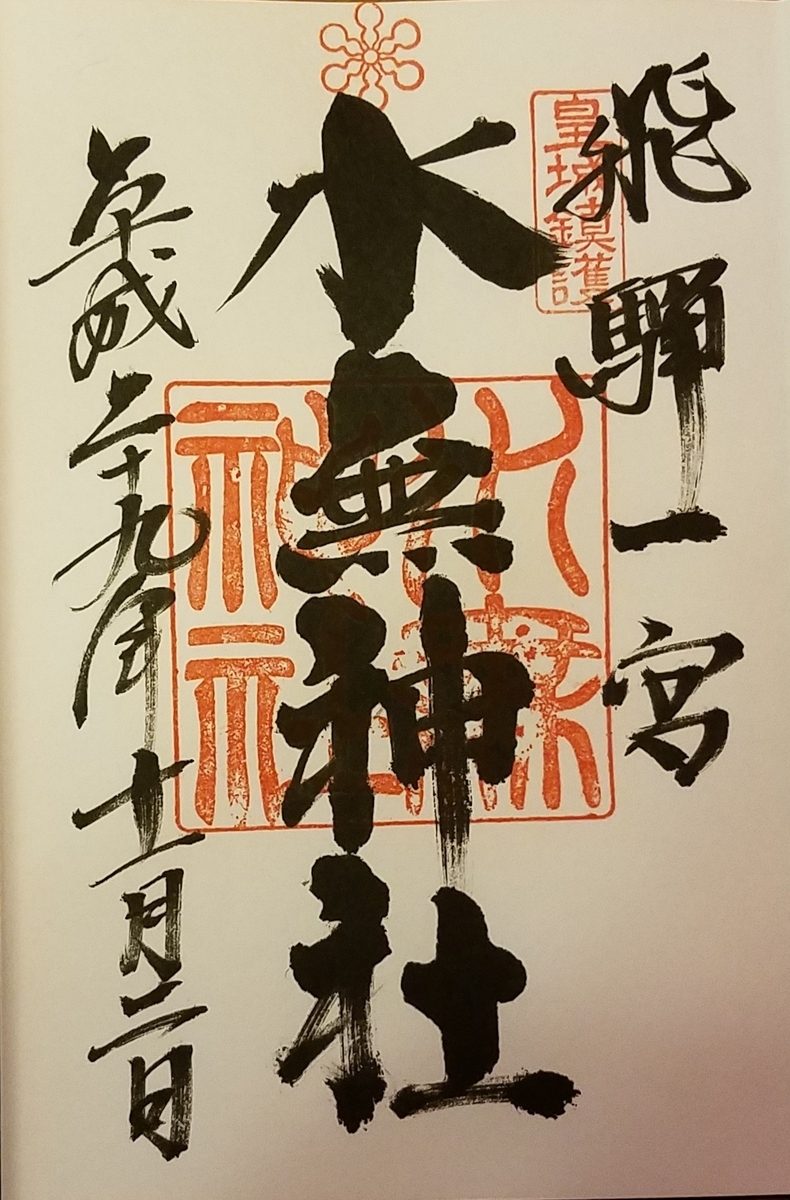 飛騨一宮
皇城鎮護
水無神社
水無神社
平成二十九年十一月二日